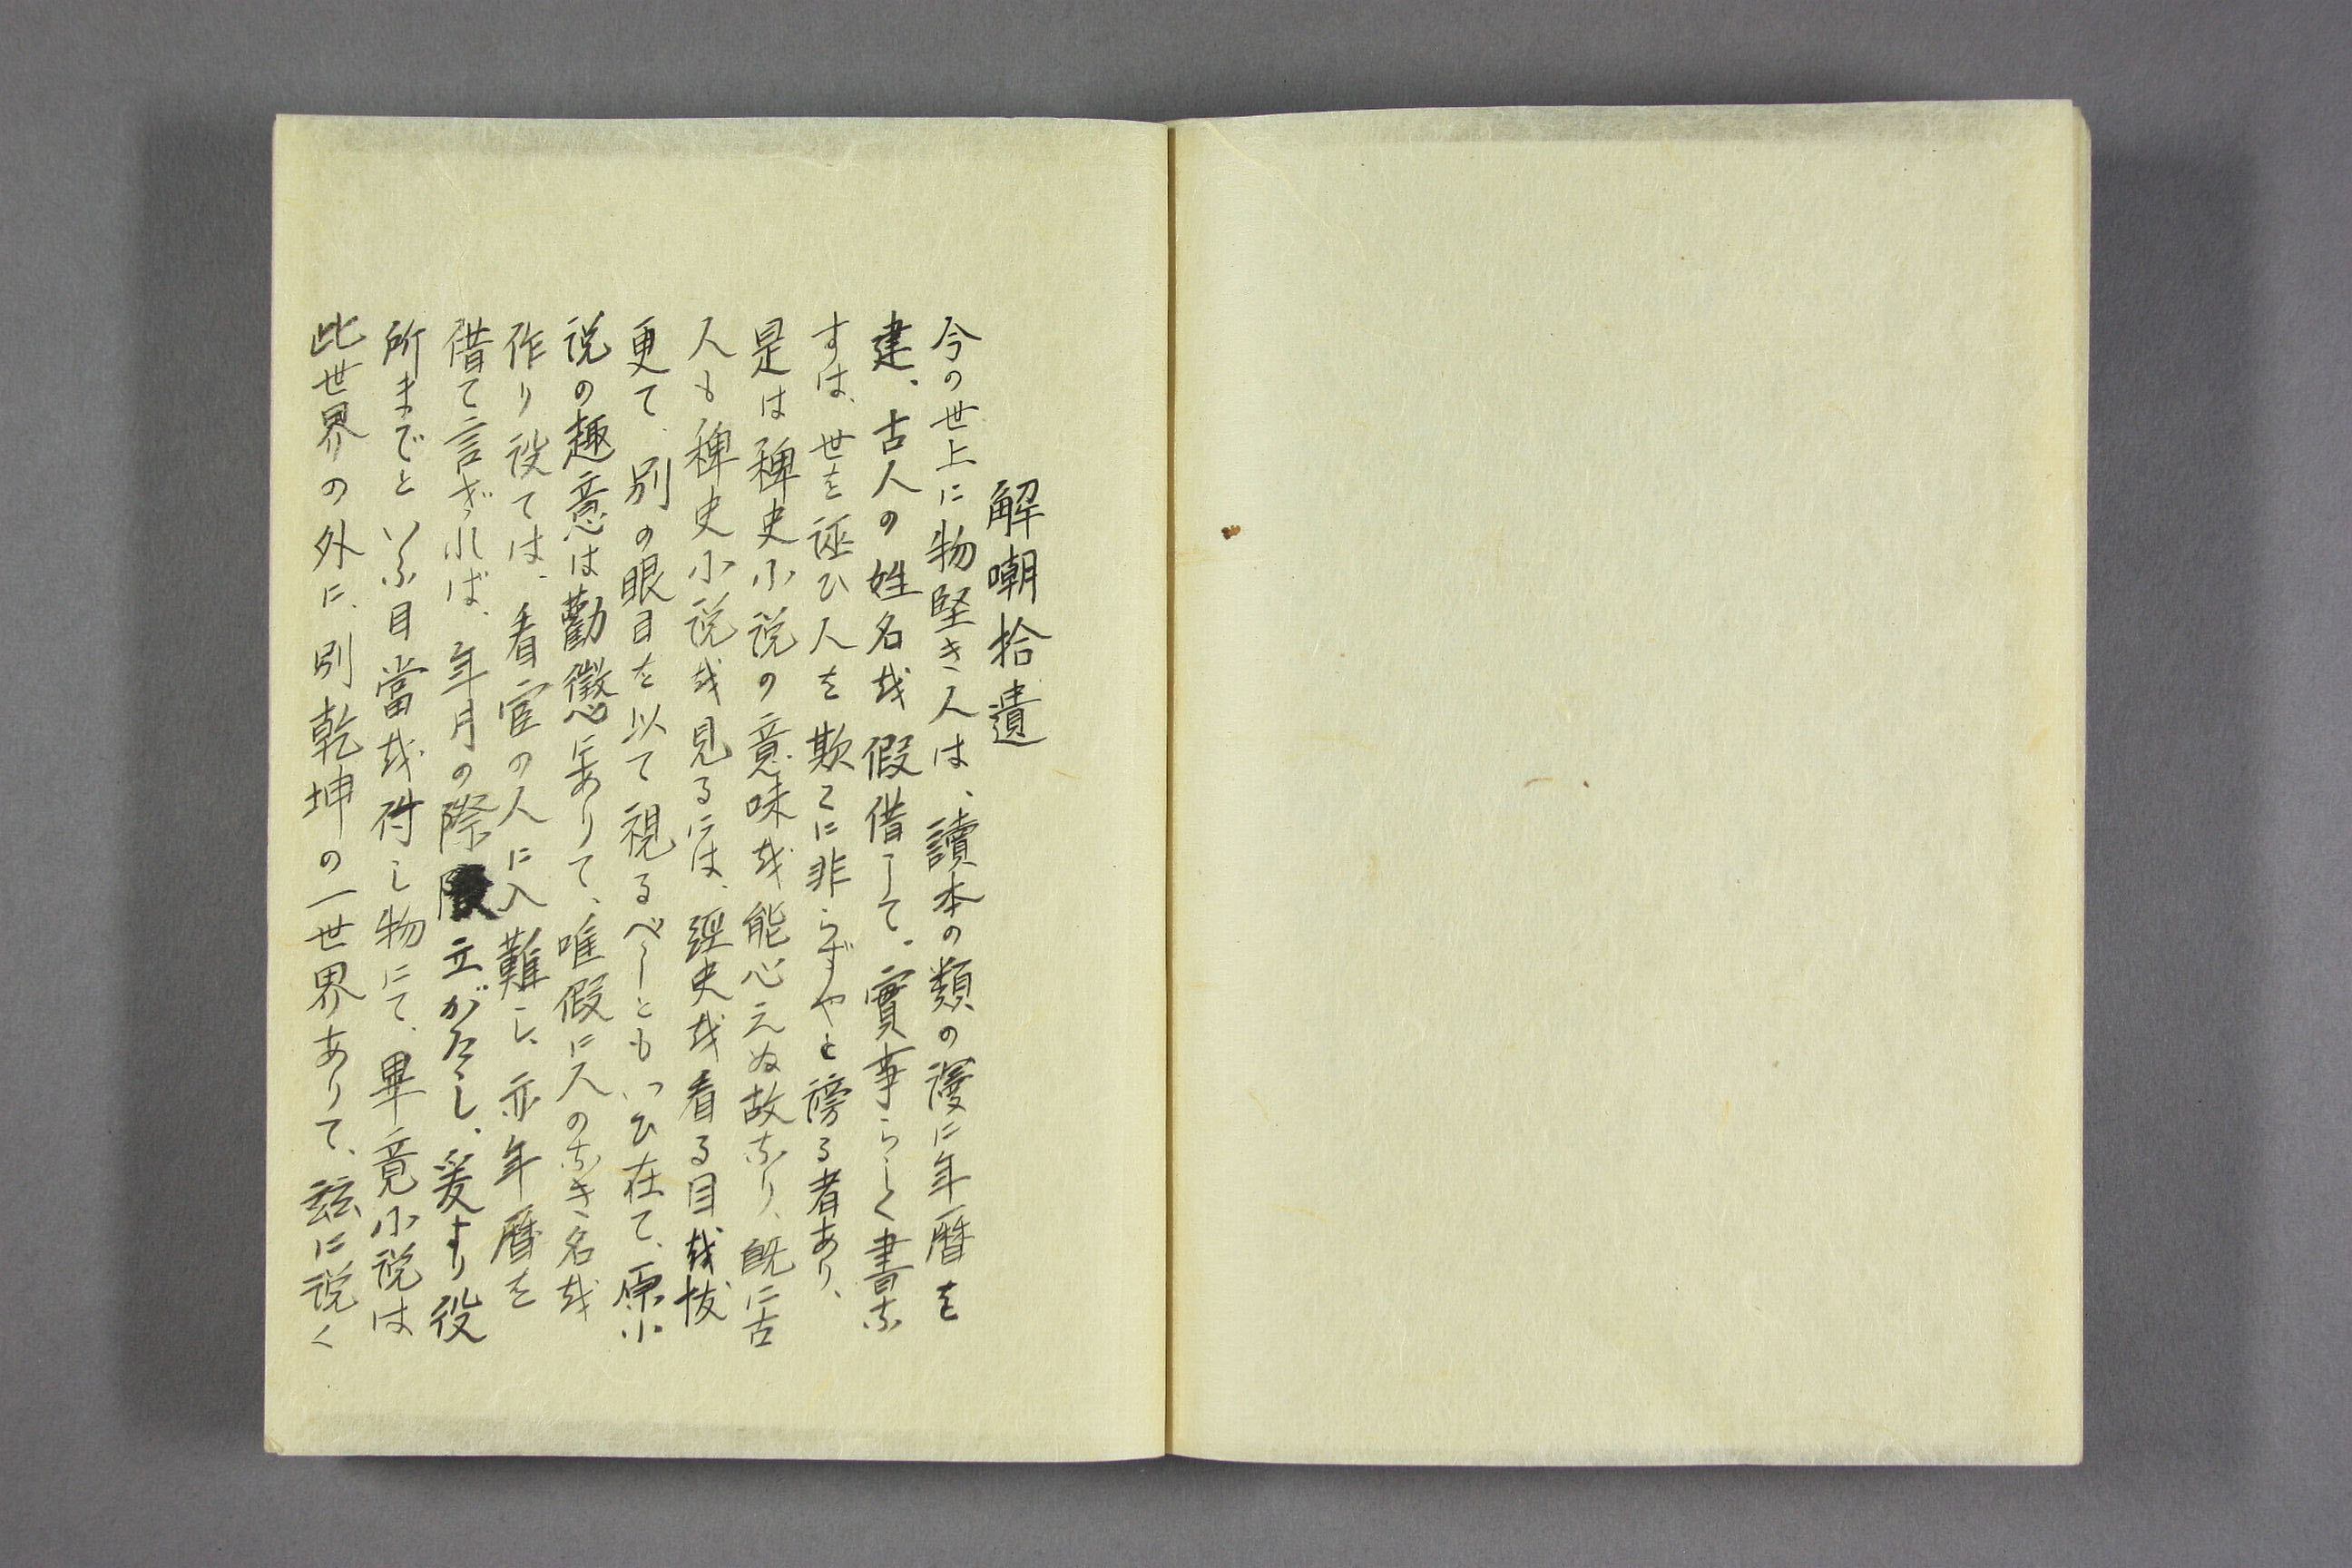 解嘲拾遺
今の世上に物堅き人は、讀本の類の謾に年暦を
建、古人の姓名を假借して、實事らしく書な
すは、世を誣ひ人を欺くに非らずやと謗る者あり、
是は稗史小説の意味を能心元ぬ故なり、既に古
人も稗史小説を見るには、經史を看る目を抜
更て、別の眼目を以て視るべしともいひ在て、原小
説の趣意は勸懲にありて、唯假に人のなき名を
作り設ては、看官の人に入難し、亦年暦を
借て言ざれば、年月の際立がたし、爰より役
所までといふ目當を附し物にて、畢竟小説は
此世界の外に、別乾坤の一世界ありて、玆に説く